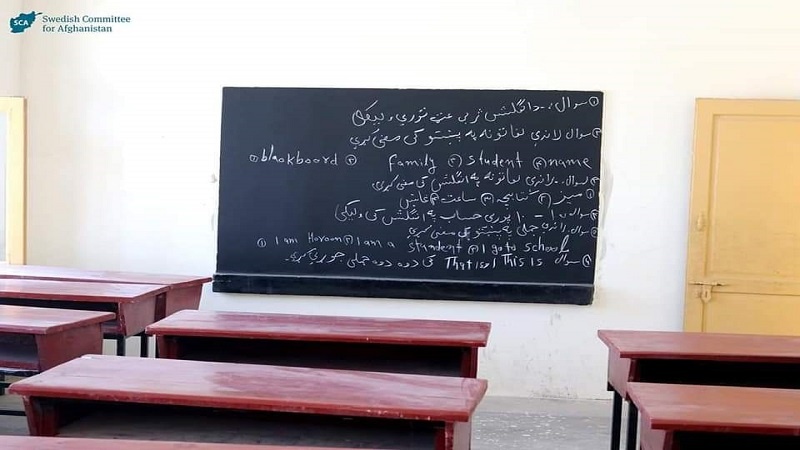 Swedish Committee
for Afghanistan
SCA
① سوال:- دانګلشي ژبې غټ توري ولیکئ
② سوال لاندې لغاتونه په پښتو کی معنی کړې
① blackboard ② family ③ student ④ name
③ سوال. لاندې لغاتونه په انګلش کی معنی کړې
① میز ② کتابچه ③ ساعت ④
④ سوال ۱ - ۱۰ پورې حساب په انګلش کی ولیکئ
⑤ سوال. لاندې جملې په پښتو کې معنی کړې
① I am Haroon ② I am a student ③ I go to school
⑥ سوال This is او That is کی دوه دوه جملی جوړې کړې.